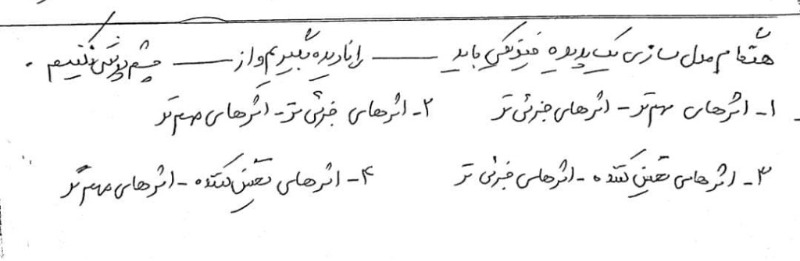 هنگام مدل سازی یک پدیده فیزیکی باید ــــــ را نادیده بگیریم و از ــــــ چشم پوشی نکنیم.
۱- اثرهای مهم تر - اثرهای جزئی تر ۲- اثرهای جزئی تر - اثرهای مهم تر
۳- اثرهای تعیین کننده - اثرهای جزئی تر ۴- اثرهای تعیین کننده - اثرهای مهم تر